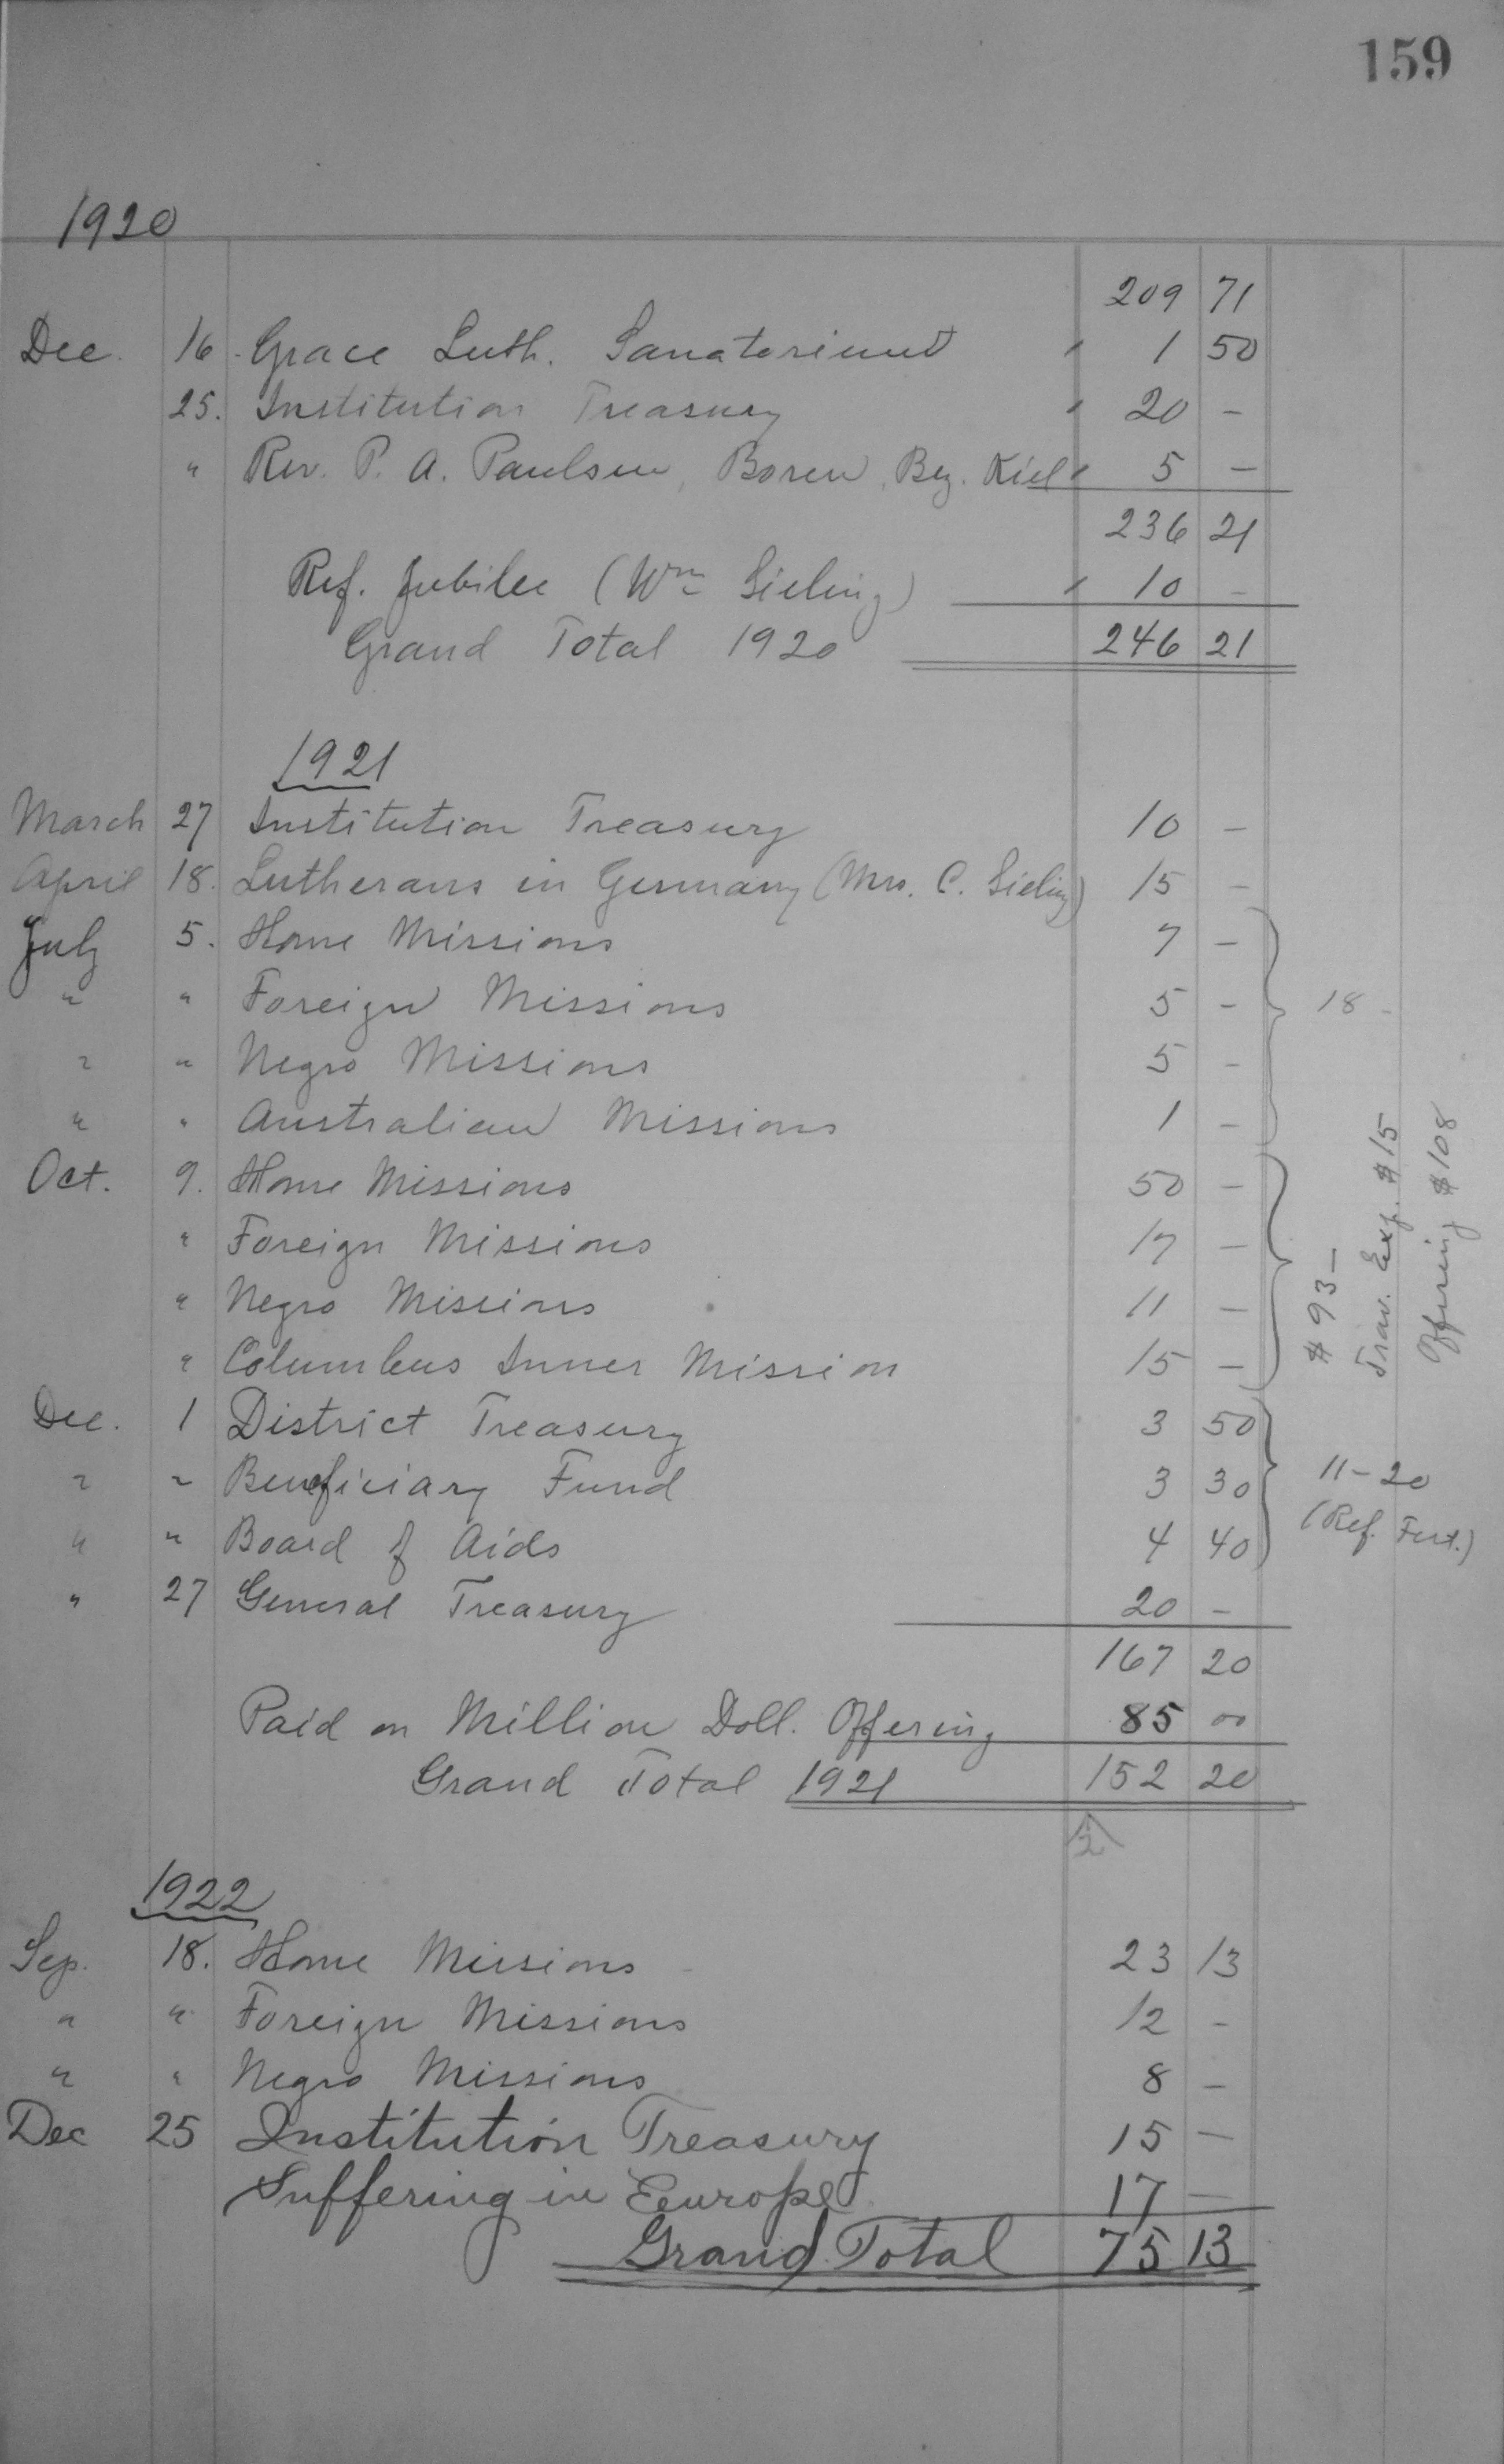 159
1920
209 71
Dec. 16 Grace Luth. Sanatorium " 1 50
25. Institution Treasury " 20 -
" Rev. P. A. Paulsen, Boren, Bez. Kiel " 5 -
236 21
Ref. Jubilee (Wm Sieling) " 10 -
Grand Total 1920 246 21
1921
March 27 Institution Treasury 10 -
April 18. Lutherans in Germany (Mrs. C. Sieling) 15 -
July 5. Home Missions 7 -
" " Foreign Missions 5 - 18 -
" " Negro Missions 5 -
" " Australian Missions 1 -
Oct. 9. Home Missions 50 -
" Foreign Missions 17 -
" Negro Missions 11 -
" Columbus Inner Mission 15 -
$93 -
Trav. Exp. $15
Offering $108
Dec. 1 District Treasury 3 50
" " Beneficiary Fund 3 30 11-20
" " Board of Aids 4 40 (Ref. Fest.)
" 27 General Treasury 20 -
167 20
Paid on Million Doll. Offering 85 00
Grand Total 1921 152 20
2
1922
Sep. 18. Home Missions 23 13
" " Foreign Missions 12 -
" " Negro Missions 8 -
Dec 25 Institution Treasury 15 -
Suffering in Europe 17 -
Grand Total 75 13